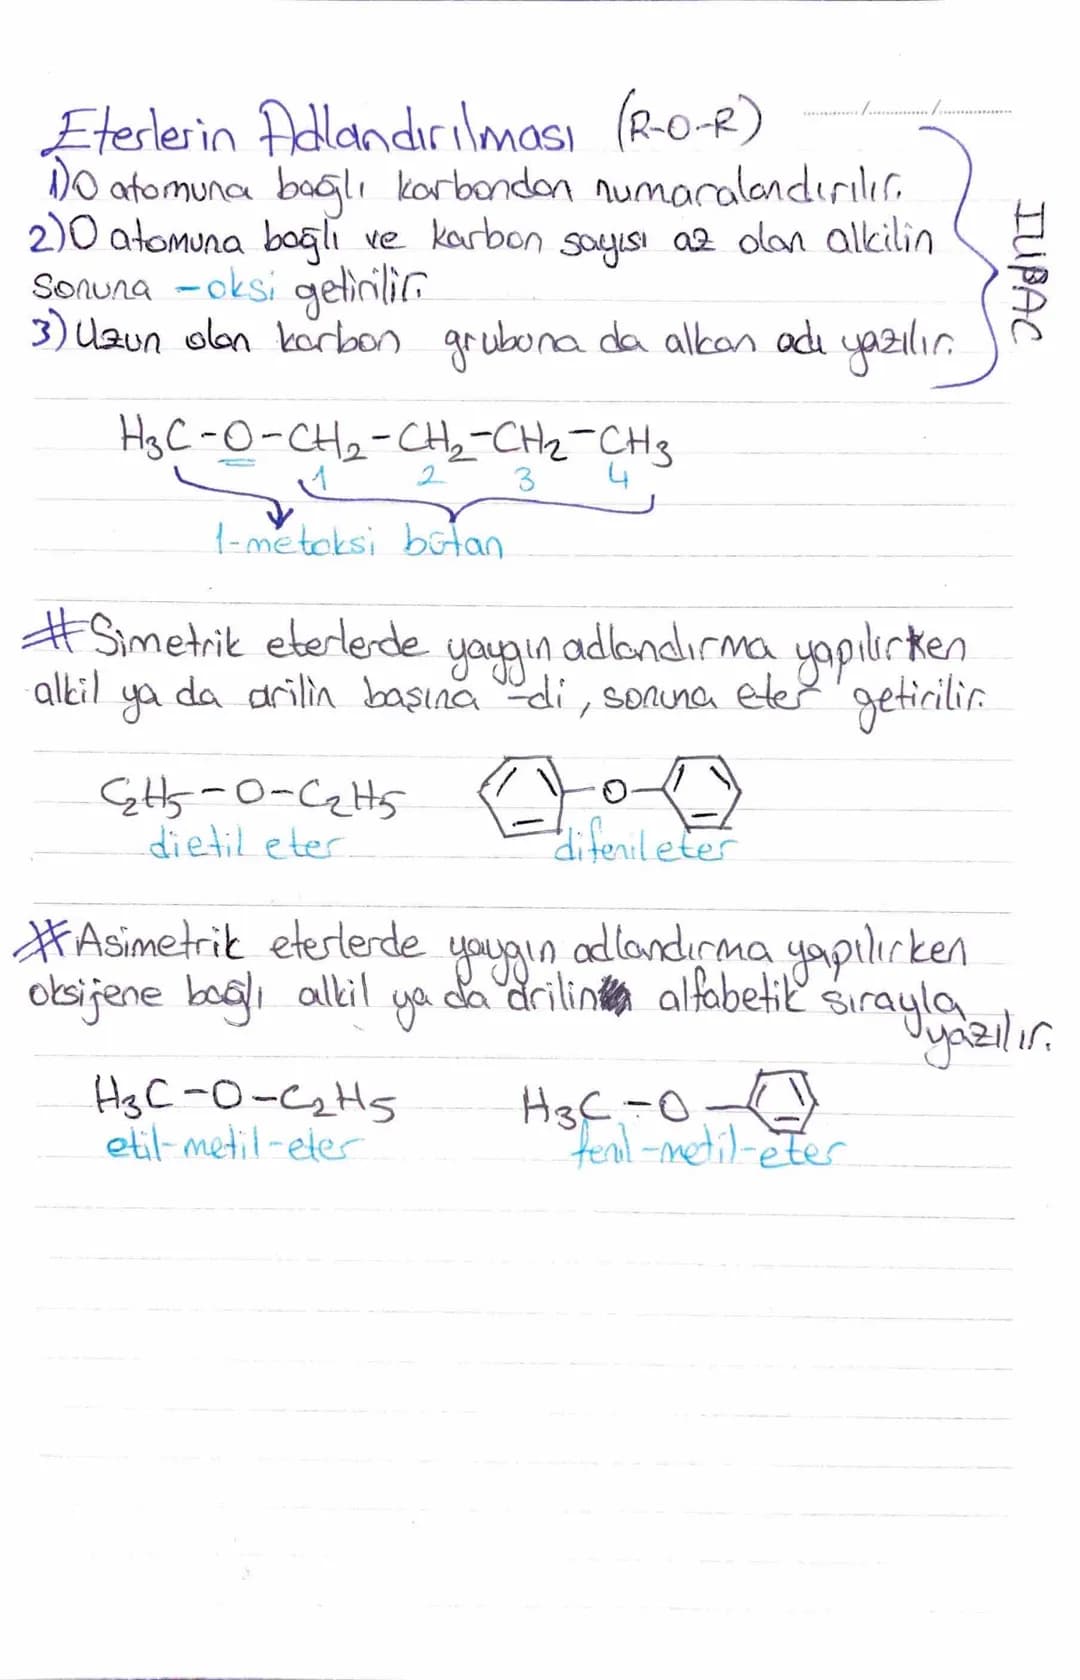 Eterlerin Adlandırılması (R-O-R)
1) O atomuna bağlı karbondan numaralandırılır.
2) O atomuna bağlı ve karbon sayısı az olan alkilin
sonuna -oksi getirilir.
3) Uzun olan karbon grubuna da alkan adı yazılır.
IUPAC
H3C-O-CH2-CH2-CH2-CH3
1 2 3 4
1-metoksi bütan
# Simetrik eterlerde yaygın adlandırma yapılırken
alkil ya da arilin başına -di, sonuna eter getirilir.
C2H5-O-C2H5 -O-
dietil eter difenileter
# Asimetrik eterlerde yaygın adlandırma yapılırken
oksijene bağlı alkil ya da arilin alfabetik sırayla
yazılır.
H3C-O-C2H5 H3C-O-
etil-metil-eter fenil-metil-eter